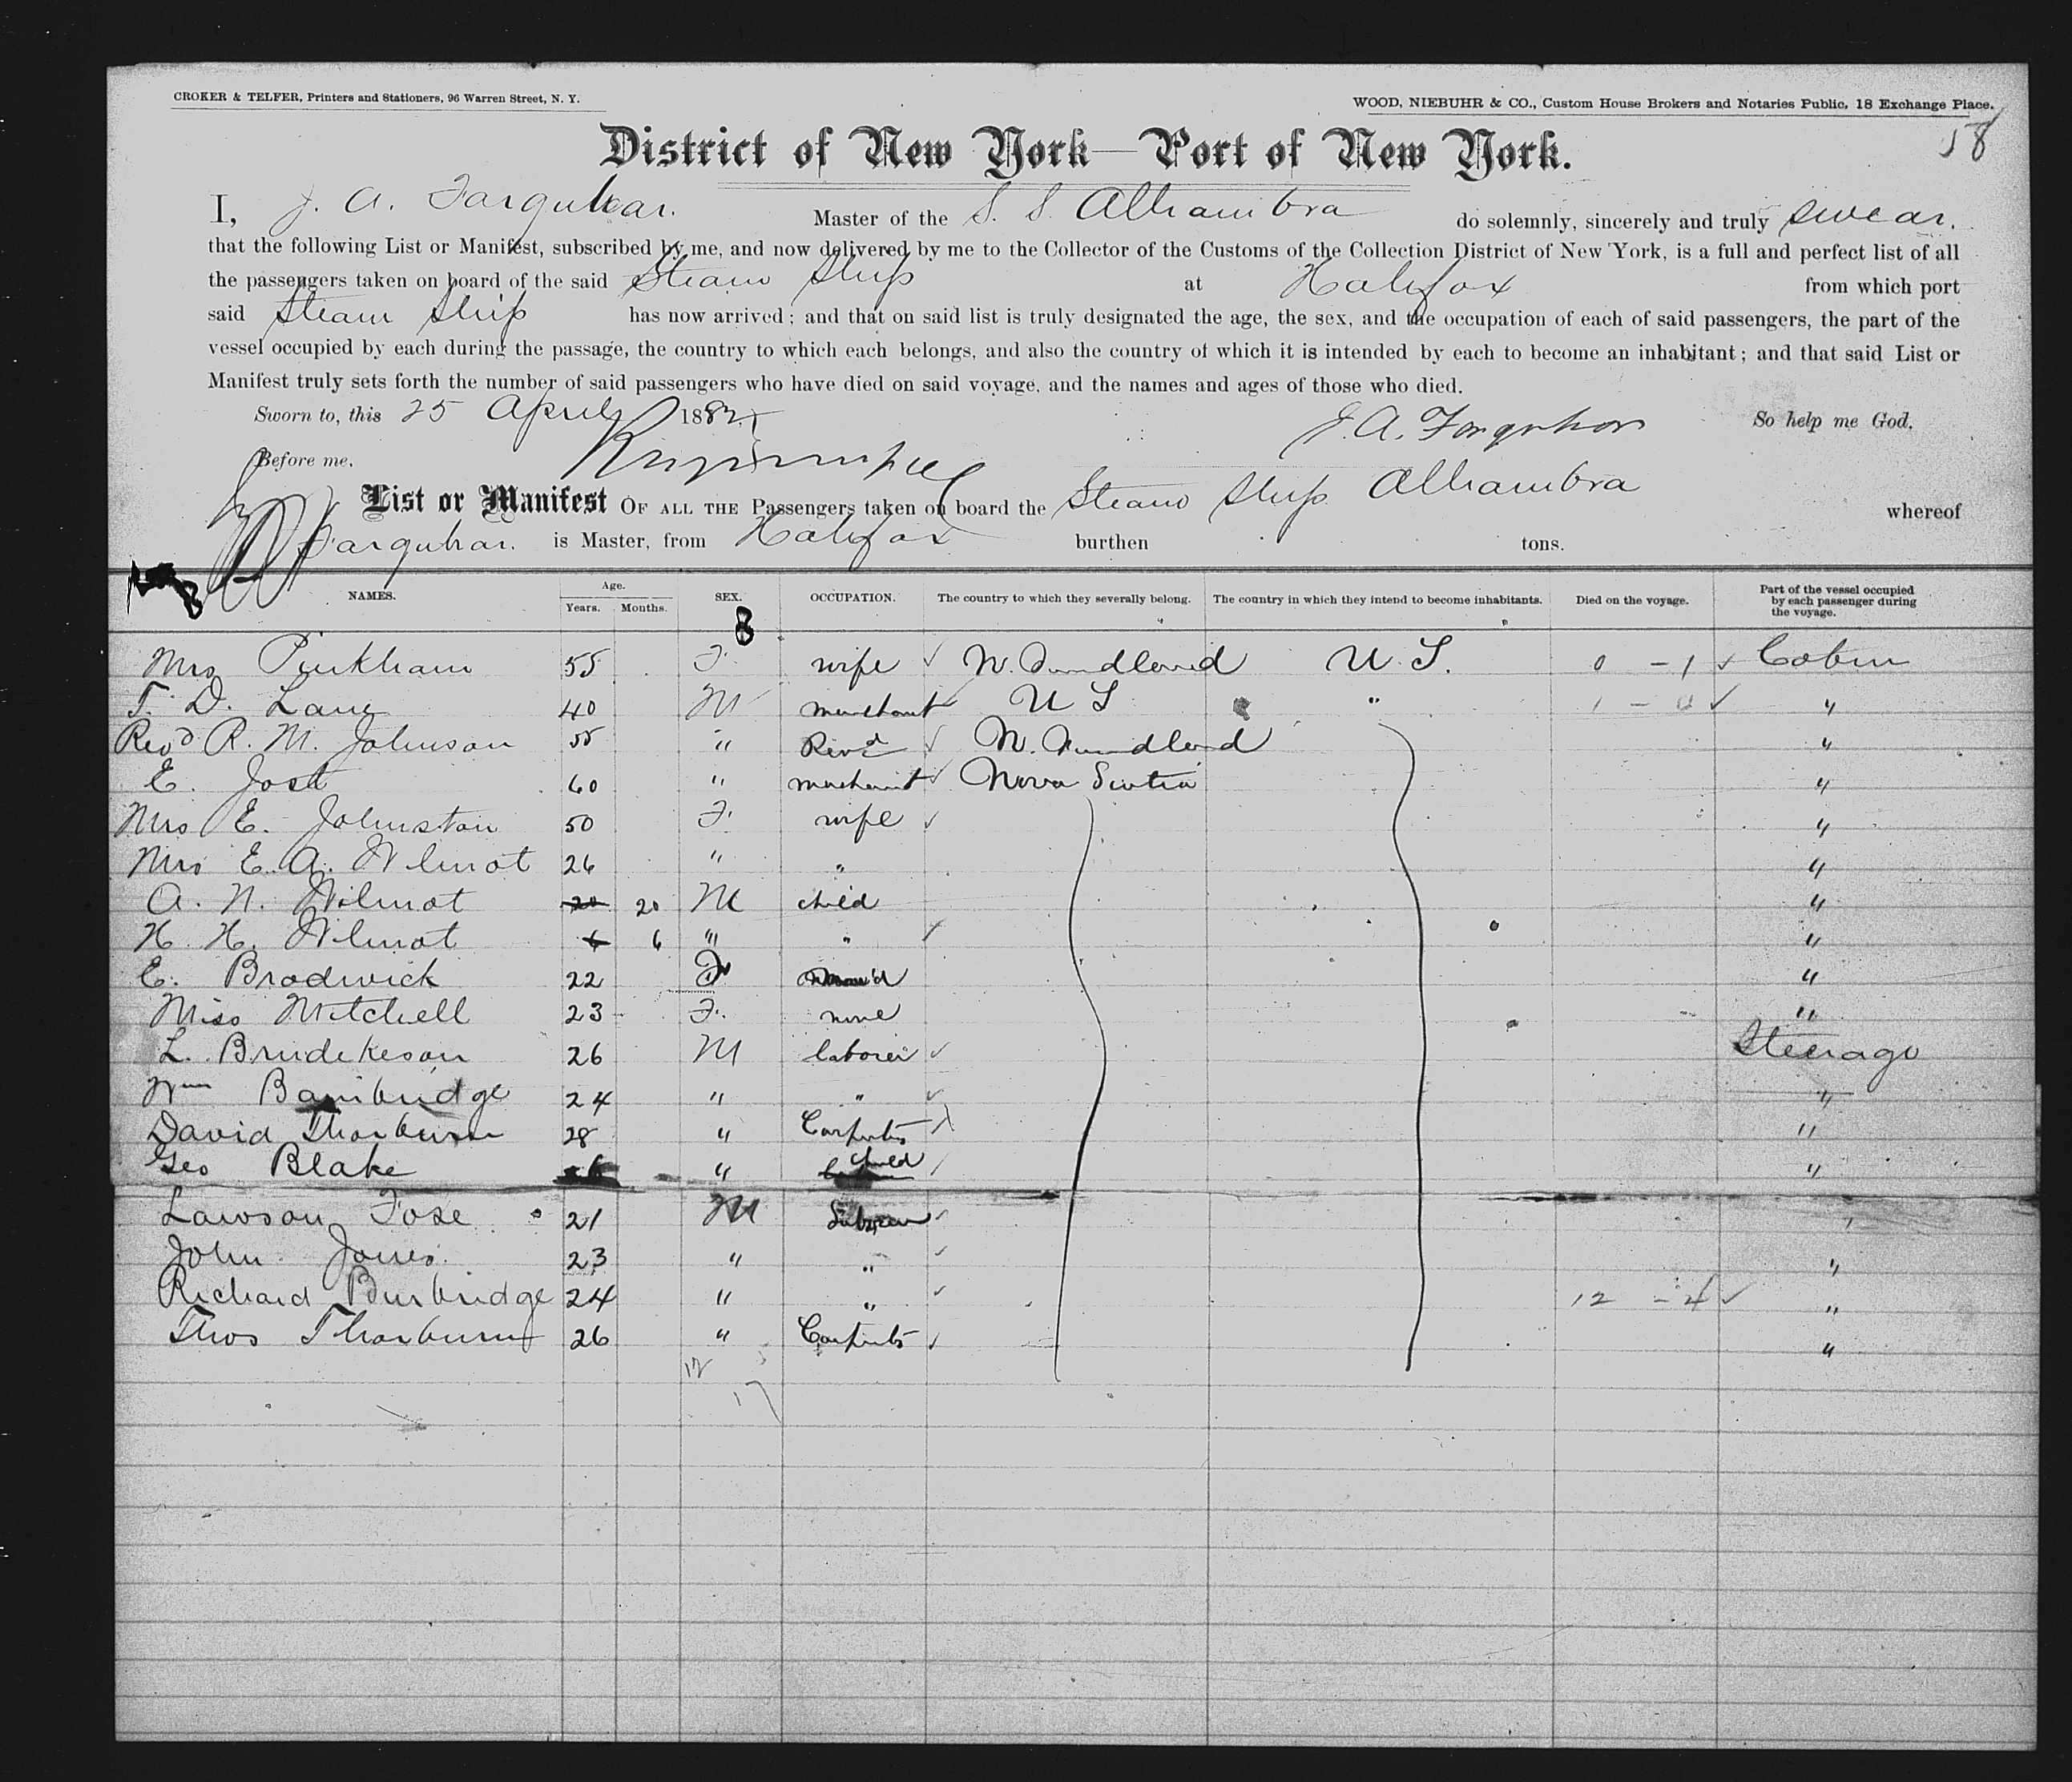 CROKER & TELFER, Printers and Stationers, 96 Warren Street, N. Y.
WOOD, NIEBUHR & CO., Custom House Brokers and Notaries Public, 18 Exchange Place.
58
District of New York—Port of New York.
I, J. A. Farquhar. Master of the S. S. Alhambra do solemnly, sincerely and truly swear.
that the following List or Manifest, subscribed by me, and now delivered by me to the Collector of the Customs of the Collection District of New York, is a full and perfect list of all
the passengers taken on board of the said Steam Ship at Halifax from which port
said Steam Ship has now arrived; and that on said list is truly designated the age, the sex, and the occupation of each of said passengers, the part of the
vessel occupied by each during the passage, the country to which each belongs, and also the country of which it is intended by each to become an inhabitant; and that said List or
Manifest truly sets forth the number of said passengers who have died on said voyage, and the names and ages of those who died.
Sworn to, this 25 April 1882 J. A. Farquhar So help me God.
Before me.
List or Manifest OF ALL THE Passengers taken on board the Steam Ship Alhambra whereof
Farquhar. is Master, from Halifax burthen tons.
NAMES. Age. Years. Months. SEX. OCCUPATION. The country to which they severally belong. The country in which they intend to become inhabitants. Died on the voyage. Part of the vessel occupied by each passenger during the voyage.
8
Mrs Pinkham 55 F. wife N. Fundland U. S. 0 - 1 Cabin
T. D. Lane 40 M merchant U S " 1 - 0 "
Revd R. M. Johnson 55 " Revd N. Fundland "
E. Jost 60 " merchant Nova Scotia "
Mrs E. Johnston 50 F. wife "
Mrs E. A. Wilmot 26 " " "
A. N. Wilmot 20 20 M child "
H. H. Wilmot 6 6 " " "
E. Brodwick 22 F "
Miss Mitchell 23 F. none "
L. Brudekeson 26 M laborer Steerage
Wm Bambridge 24 " " "
David Thorburn 28 " Carpenter "
Geo Blake " child "
Lawson Fose 21 M
John Jones 23 " " "
Richard Burbridge 24 " " 12 - 4 "
Thos Thorburn 26 " Carpenter "
12
17